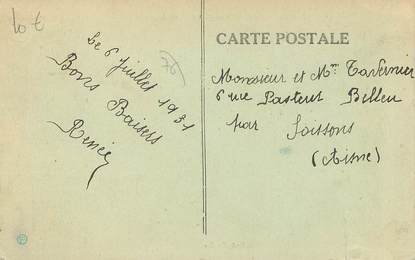 10 €
Le 6 Juillet 1931
Bons
Baisers
Renée
CARTE POSTALE
Monsieur et Mme Tavernier
6 rue Pasteur Belleu
par Soissons
(Aisne)